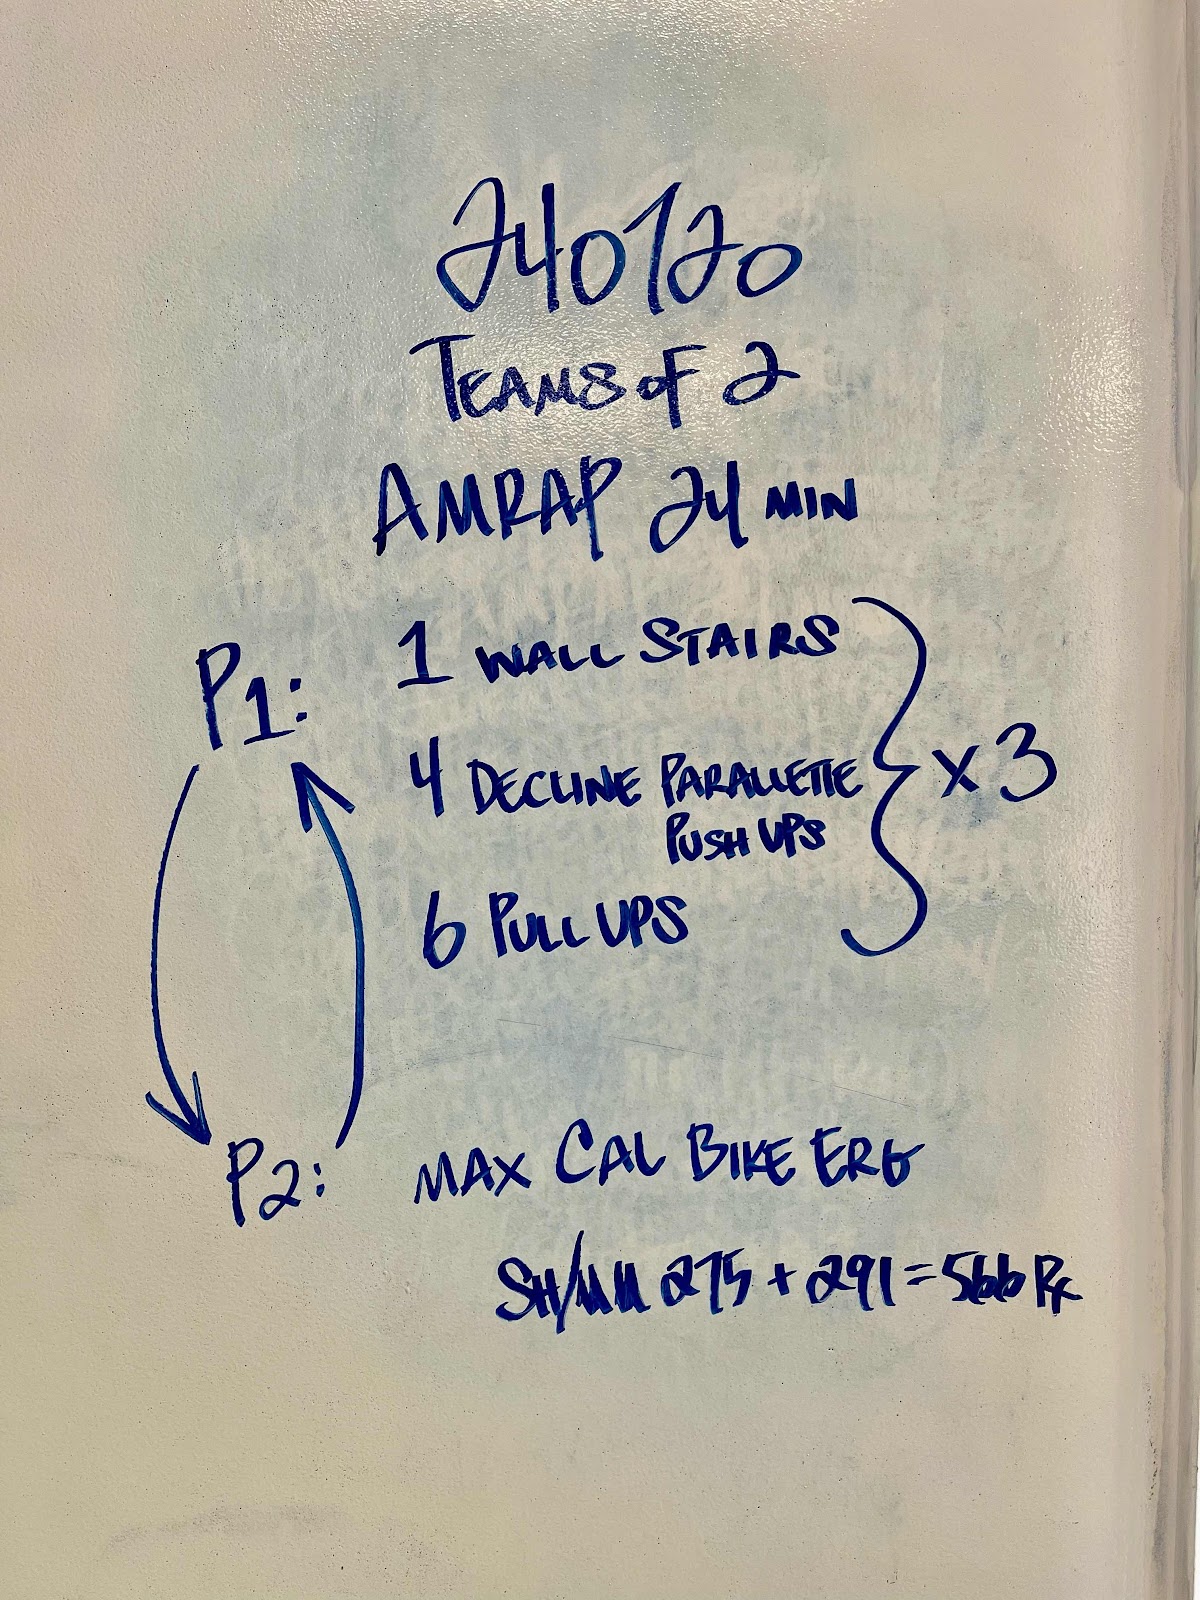 240120
TEAMS OF 2
AMRAP 24 MIN
P1: 1 WALL STAIRS
4 DECLINE PARALLETTE
PUSH UPS
6 PULL UPS
x 3
P2: MAX CAL BIKE ERG
SH/MM 275 + 291 = 566 Rx